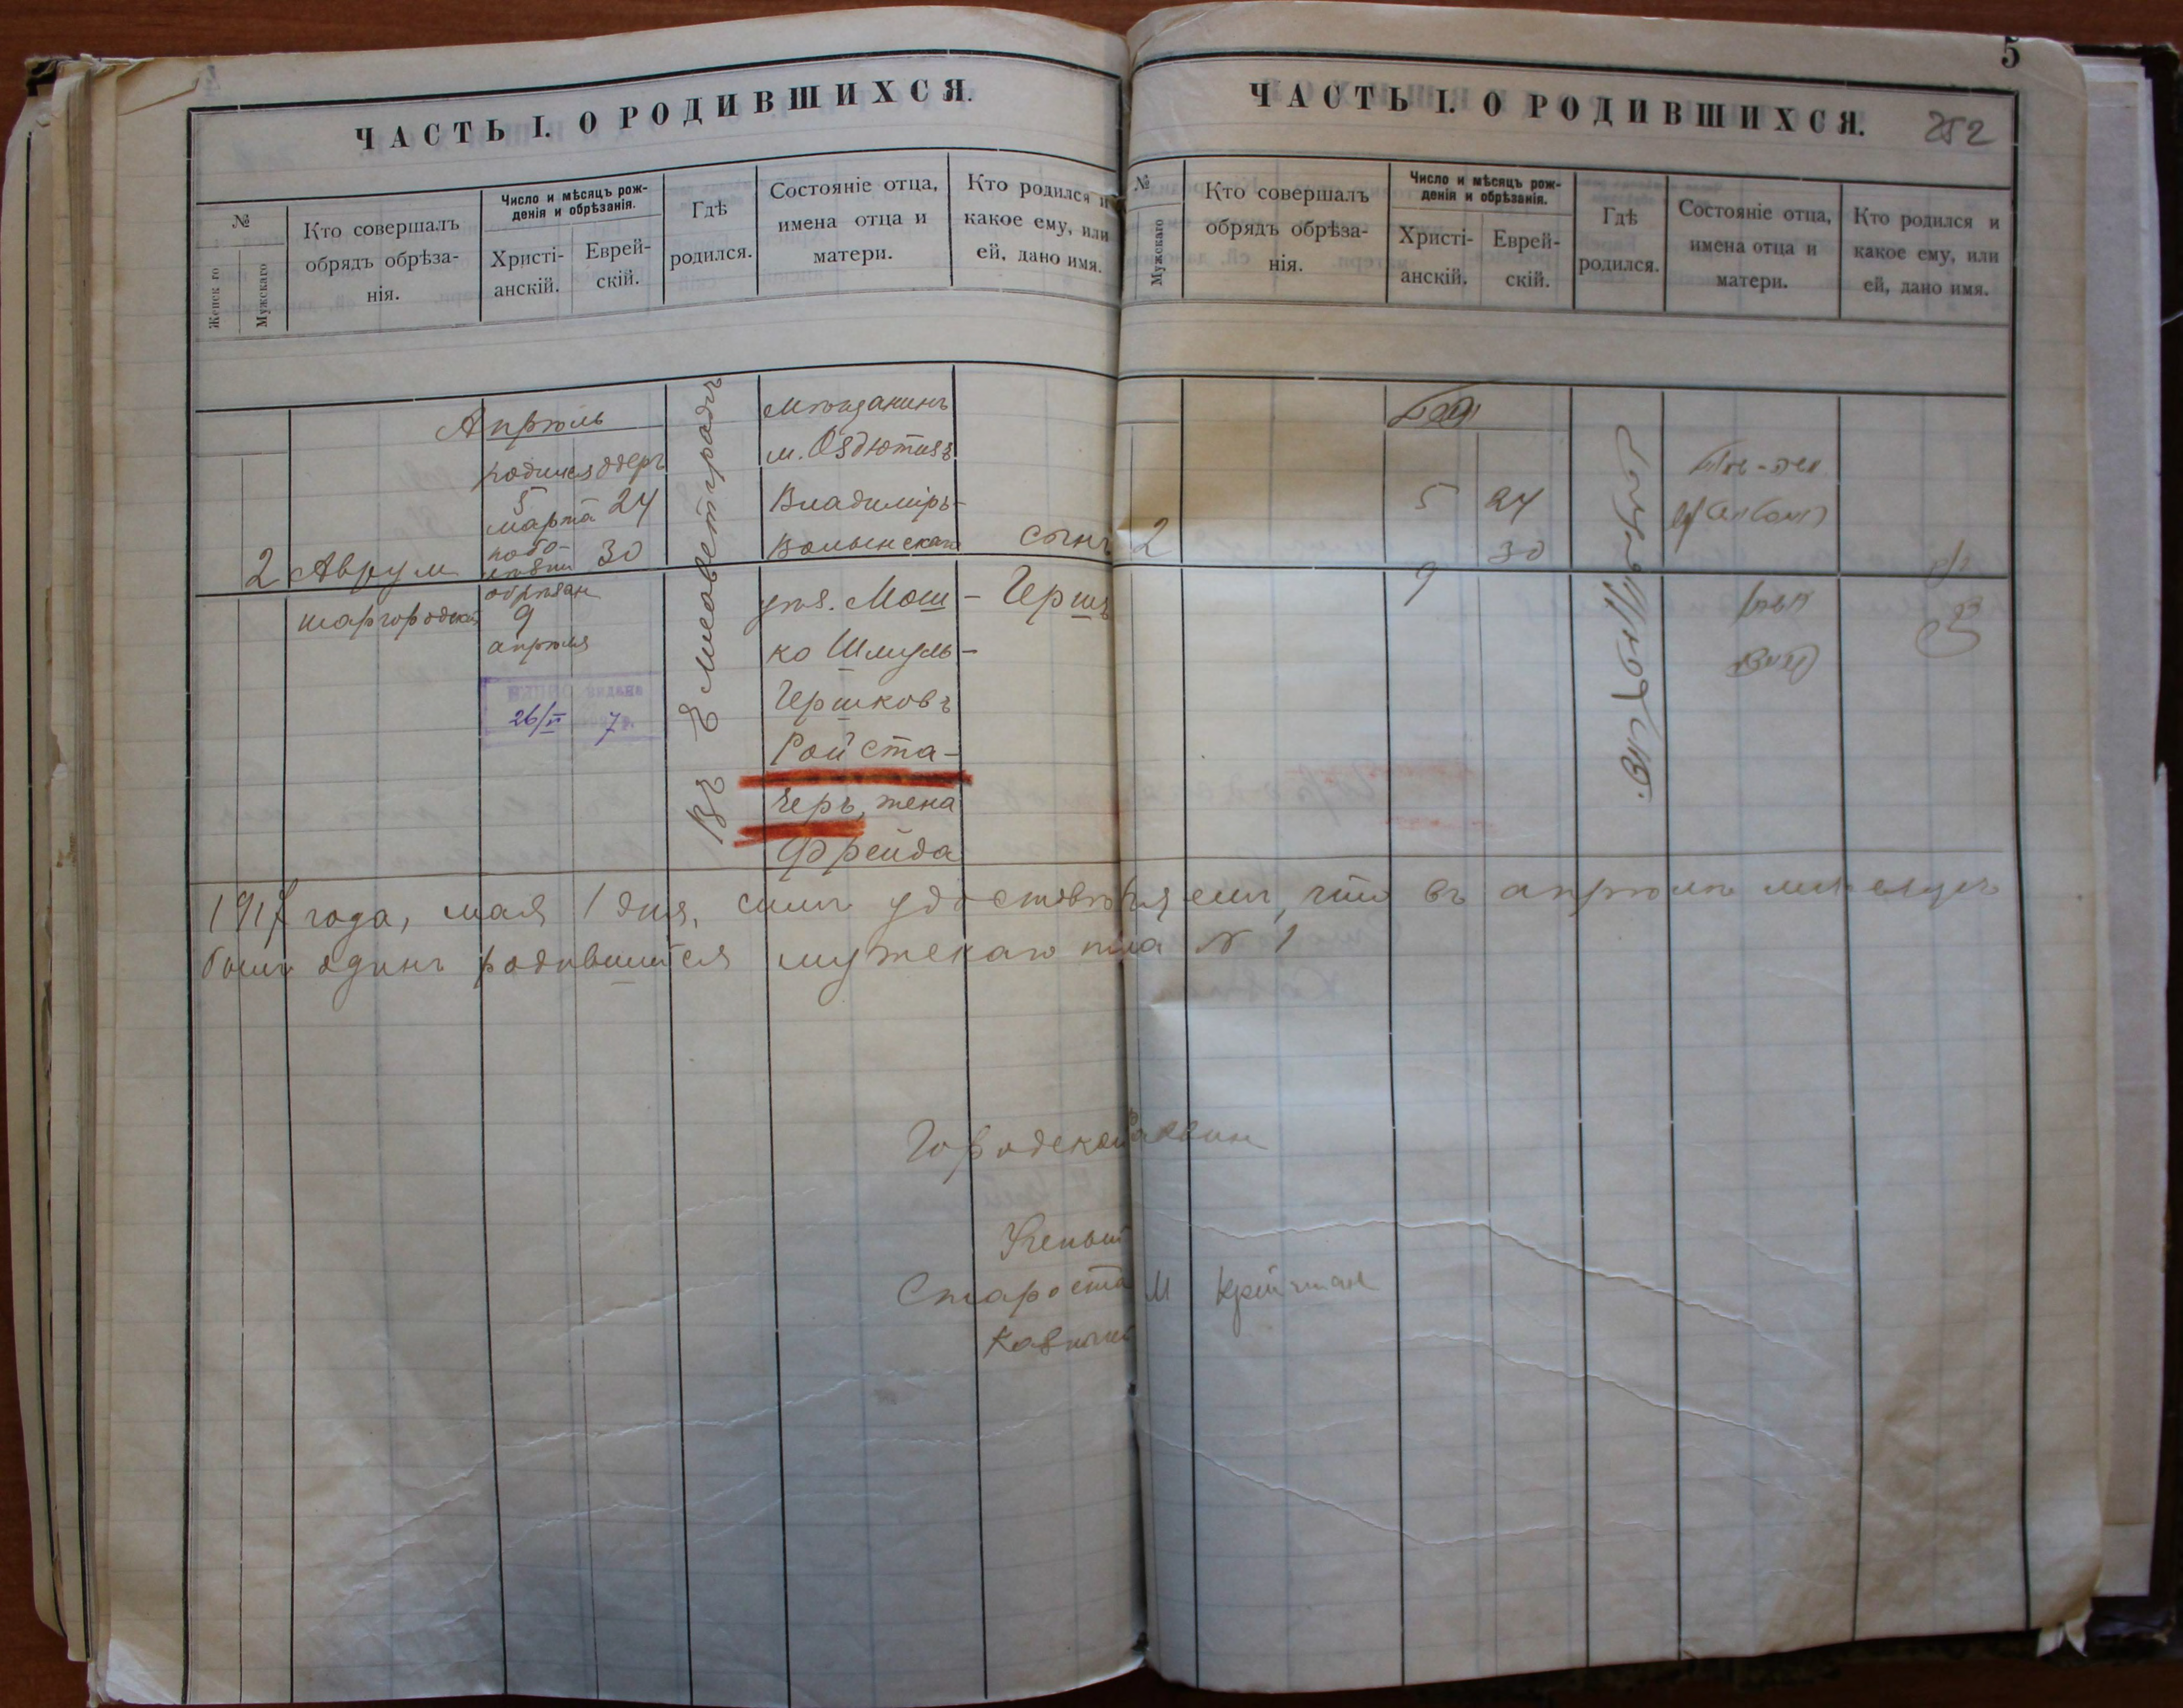 ЧАСТЬ I. О РОДИВШИХСЯ.
№
Женск го
Мужскаго
Кто совершалъ
обрядъ обрѣза-
нія.
Число и мѣсяцъ рож-
денія и обрѣзанія.
Христі-
анскій.
Еврей-
скій.
Гдѣ
родился.
Состояніе отца,
имена отца и
матери.
Кто родился и
какое ему, или
ей, дано имя.
Апрѣль
2
Аврум
Шаргородскій
родился
5
марта
24
30
обрѣзан
9
апрѣля
видана
26/VI 7
Въ Елисаветградѣ
Мѣщанинъ
м. Оздютизъ
Владиміръ-
Волынскаго
уѣз. Мош-
ко Шмуль-
Гершковъ
Ройста-
черъ, жена
Фрейда
сынъ
Гершъ
5
ЧАСТЬ I. О РОДИВШИХСЯ.
252
№
Мужскаго
Кто совершалъ
обрядъ обрѣза-
нія.
Число и мѣсяцъ рож-
денія и обрѣзанія.
Христі-
анскій.
Еврей-
скій.
Гдѣ
родился.
Состояніе отца,
имена отца и
матери.
Кто родился и
какое ему, или
ей, дано имя.
2
5
24
30
9
1917 года, мая 1 дня, симъ удостовѣряемъ, что въ апрѣлѣ мѣсяцѣ
былъ одинъ родившійся мужскаго пола № 1
Городской Раввинъ
Ученый
Староста М Крейчман
Казначей